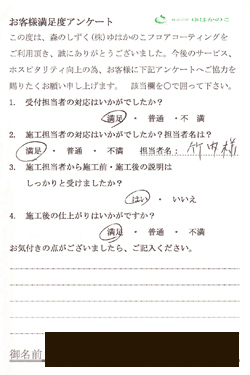 お客様満足度アンケート
ゆはかのこ
この度は、森のしずく(株)ゆはかのこフロアコーティングを
ご利用頂き、誠にありがとうございました。今後のサービス、
ホスピタリティ向上の為、お客様に下記アンケートへご協力を
賜りたくお願い申し上げます。 該当欄を○で囲って下さい。
1. 受付担当者の対応はいかがでしたか?
満足 ・ 普通 ・ 不満
2. 施工担当者の対応はいかがでしたか?担当者名は?
満足 ・ 普通 ・ 不満 担当者名: 竹内様
3. 施工担当者から施工前・施工後の説明は
しっかりと受けましたか?
はい ・ いいえ
4. 施工後の仕上がりはいかがですか?
満足 ・ 普通 ・ 不満
お気付きの点がございましたら、ご記入ください。
御名前